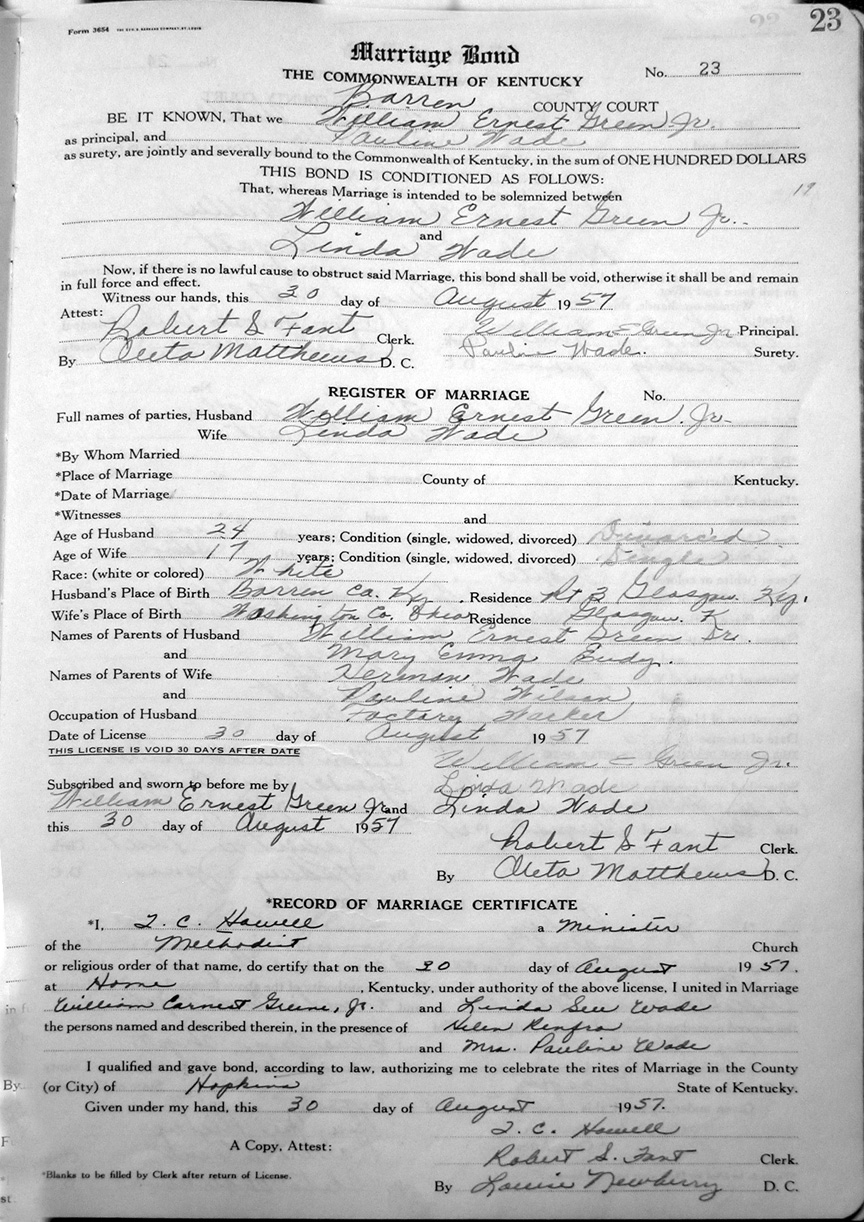 23
Form 3654 THE GEO. D. BARNARD COMPANY, ST. LOUIS
Marriage Bond
THE COMMONWEALTH OF KENTUCKY No. 23
Barren COUNTY COURT
BE IT KNOWN, That we William Ernest Green Jr.
as principal, and Pauline Wade
as surety, are jointly and severally bound to the Commonwealth of Kentucky, in the sum of ONE HUNDRED DOLLARS
THIS BOND IS CONDITIONED AS FOLLOWS:
That, whereas Marriage is intended to be solemnized between
William Ernest Green Jr.
and
Linda Wade
Now, if there is no lawful cause to obstruct said Marriage, this bond shall be void, otherwise it shall be and remain
in full force and effect.
Witness our hands, this 30 day of August 1957
Attest:
Robert S Fant Clerk. William E Green Jr Principal.
By Oleta Matthews D. C. Pauline Wade. Surety.
REGISTER OF MARRIAGE No.
Full names of parties, Husband William Ernest Green. Jr.
Wife Linda Wade
*By Whom Married
*Place of Marriage County of Kentucky.
*Date of Marriage
*Witnesses and
Age of Husband 24 years; Condition (single, widowed, divorced) Divorced
Age of Wife 17 years; Condition (single, widowed, divorced) Single
Race: (white or colored) White
Husband's Place of Birth Barren Co. Ky. Residence Rt 3 Glasgow. Ky.
Wife's Place of Birth Washington Co. Ohio Residence Glasgow. K
Names of Parents of Husband William Ernest Green Sr.
and Mary Emma
Names of Parents of Wife Herman Wade
and Pauline Wilson
Occupation of Husband Factory Worker
Date of License 30 day of August 1957
THIS LICENSE IS VOID 30 DAYS AFTER DATE
William E Green Jr.
Subscribed and sworn to before me by Linda Wade
William Ernest Green Jr. and Linda Wade
this 30 day of August 1957
Robert S Fant Clerk.
By Oleta Matthews D. C.
*RECORD OF MARRIAGE CERTIFICATE
*I, T. C. Howell a Minister
of the Methodist Church
or religious order of that name, do certify that on the 30 day of August 1957.
at Home, Kentucky, under authority of the above license, I united in Marriage
William Earnest Greene, Jr. and Linda Sue Wade
the persons named and described therein, in the presence of Helen Renfro
and Mrs. Pauline Wade
I qualified and gave bond, according to law, authorizing me to celebrate the rites of Marriage in the County
(or City) of Hopkins State of Kentucky.
Given under my hand, this 30 day of August 1957.
T. C. Howell
A Copy, Attest: Robert S. Fant Clerk.
*Blanks to be filled by Clerk after return of License.
By Louise Newberry D. C.